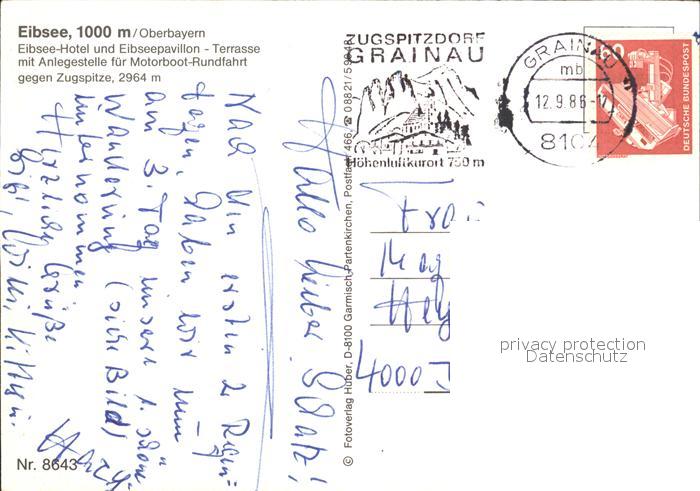 Eibsee, 1000 m/Oberbayern
Eibsee-Hotel und Eibseepavillon - Terrasse
mit Anlegestelle für Motorboot-Rundfahrt
gegen Zugspitze, 2964 m
Hallo lieber Schatz!
Nach den ersten 2 Regen=
tagen, haben wir nun
am 3. Tag unsere 1. schöne
Wanderung (siehe Bild)
unternommen
Herzliche Grüße
Nr. 8643
© Fotoverlag Huber, D-8100 Garmisch-Partenkirchen, Postfach 466, ☎ 08821/
ZUGSPITZDORF
GRAINAU
Höhenluftkurort 750 m
GRAINAU
mb
12.9.86-17
8104
60
DEUTSCHE BUNDESPOST
Frau
4000
privacy protection
Datenschutz